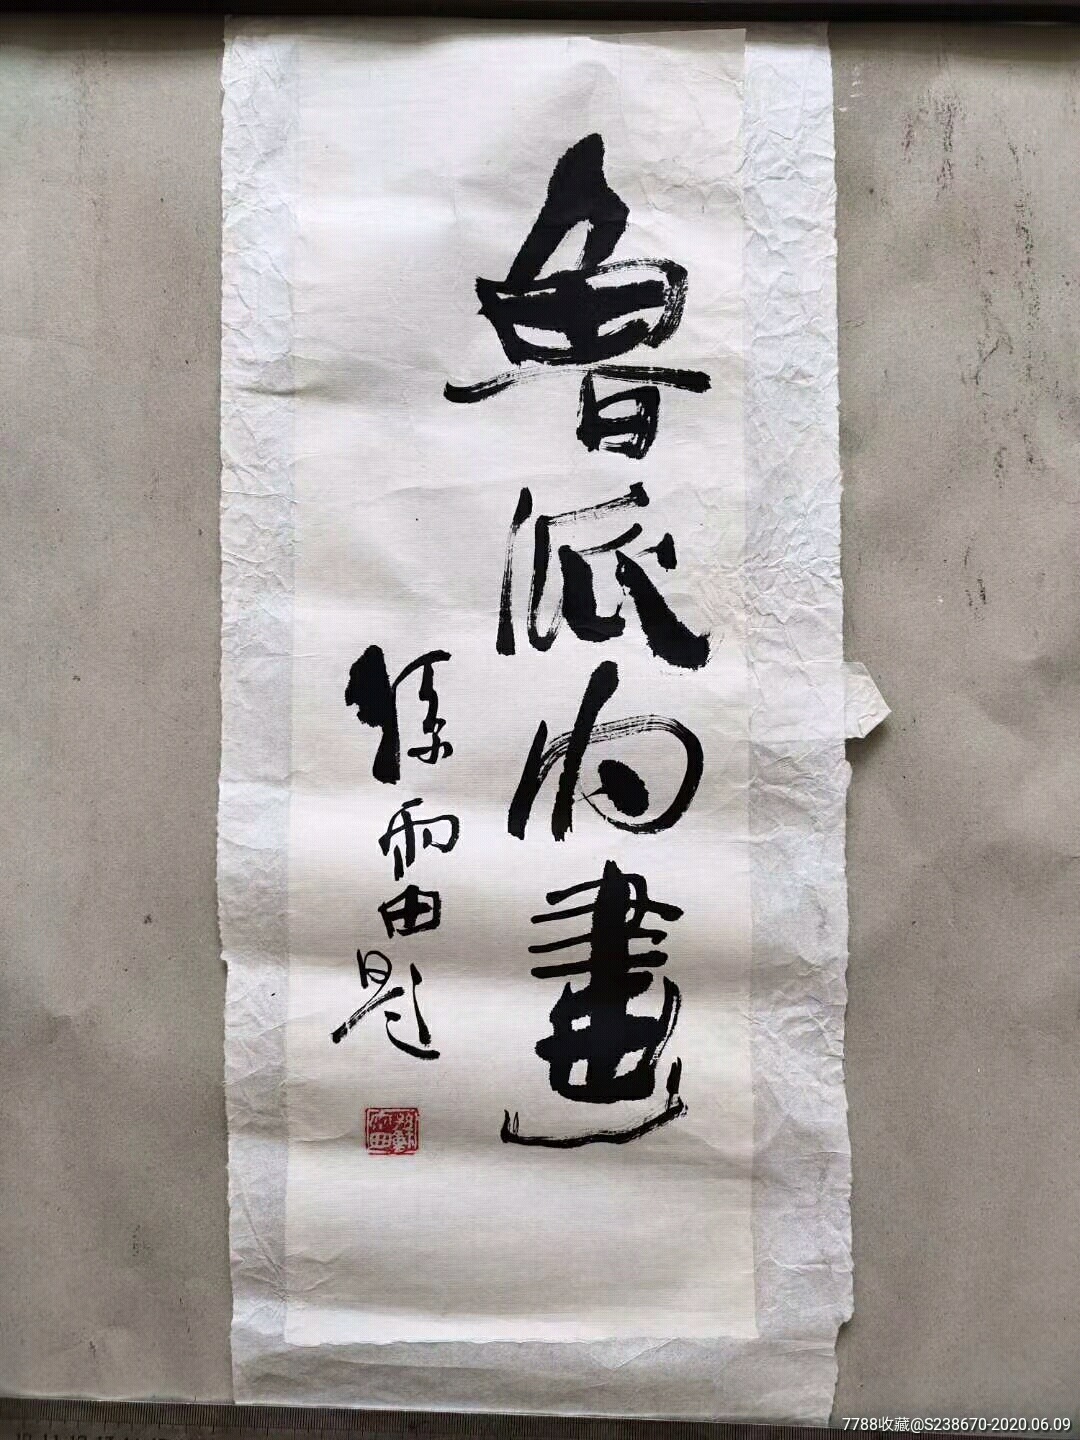 魯派内畫
孫雨田題
7788收藏@S238670-2020.06.09